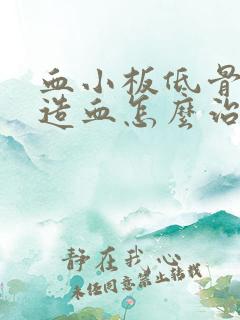 血小板低骨
造血怎麼治
静在我心
未经同意禁止转载